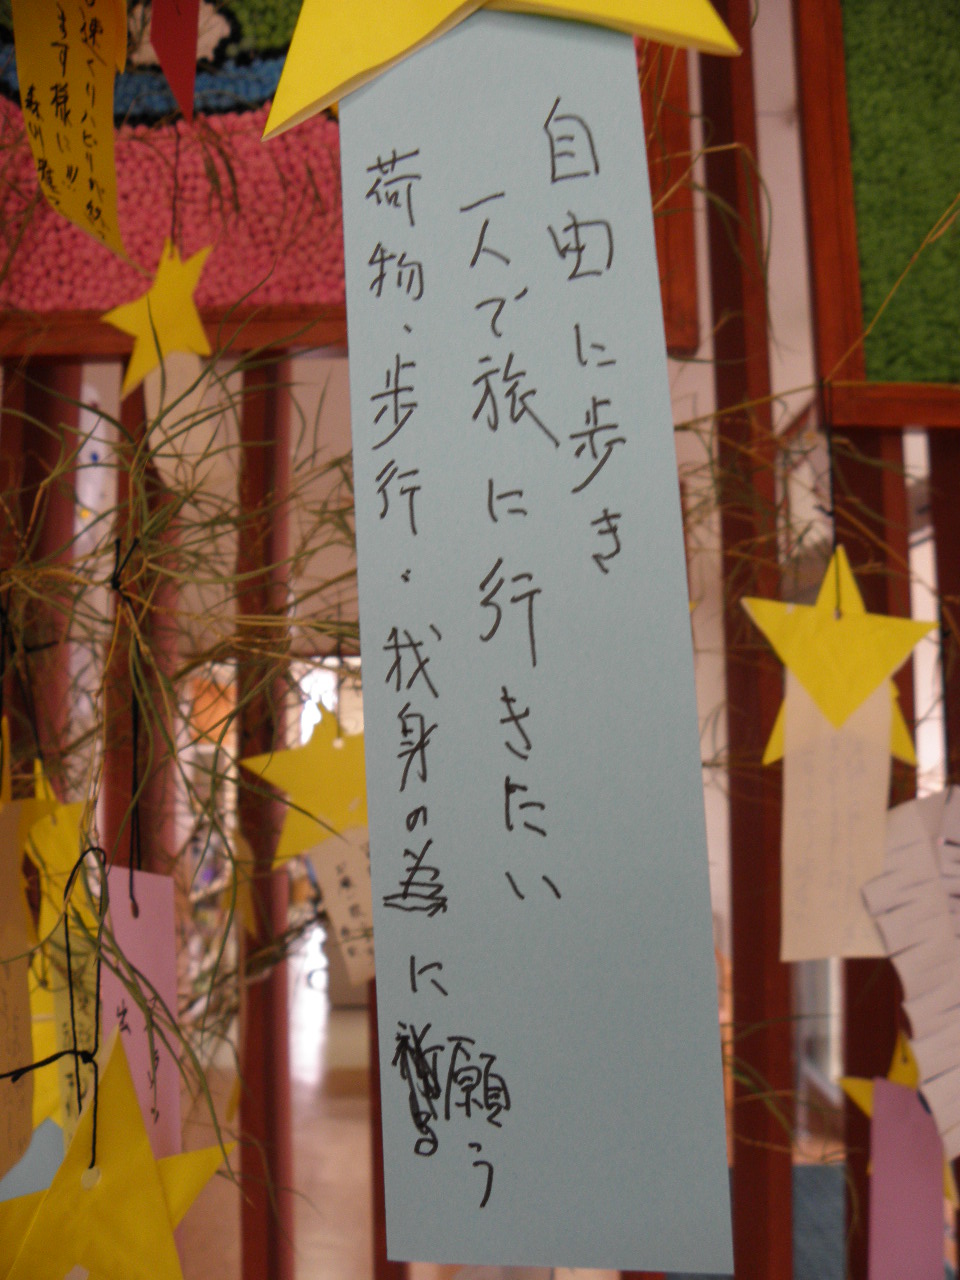 自由に歩き
一人で旅に行きたい
荷物、歩行、我身の為に願う
速くリハビリが終
ます様に!!